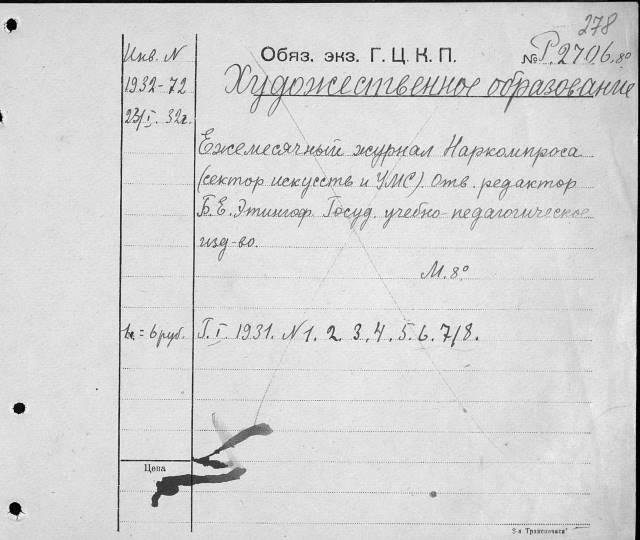 278
Инв. N
Обяз. экз. Г. Ц. К. П.
№ Р. 2706. 8º
1932-72
Художественное образование
23/I. 32г.
Ежемесячный журнал Наркомпроса
(сектор искусств и УМС). Отв. редактор
Б. Е. Этингоф. Госуд. учебно-педагогическое
изд-во.
М. 8º
= 6 руб.
Г. I. 1931. N 1. 2. 3. 4. 5. 6. 7/8.
Цена